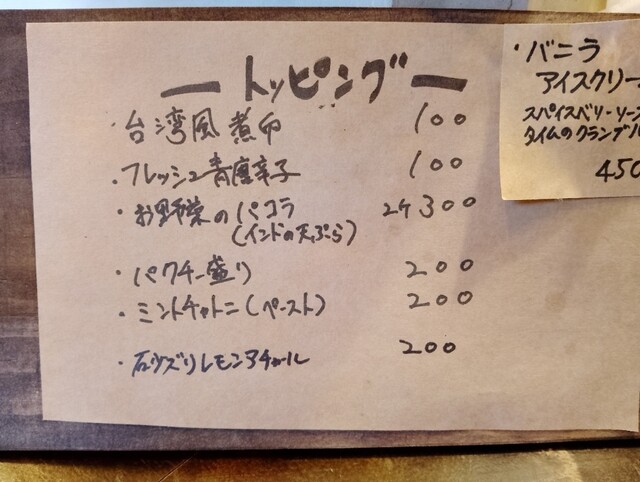 ートッピングー
・台湾風煮卵 100
・フレッシュ青唐辛子 100
・お野菜のパコラ 2ケ300
(インドの天ぷら)
・パクチー盛り 200
・ミントチャトニ(ペースト) 200
・石ウズリレモンアチャール 200
・バニラ
アイスクリー
スパイスベリーソース
タイムのクランブル
450